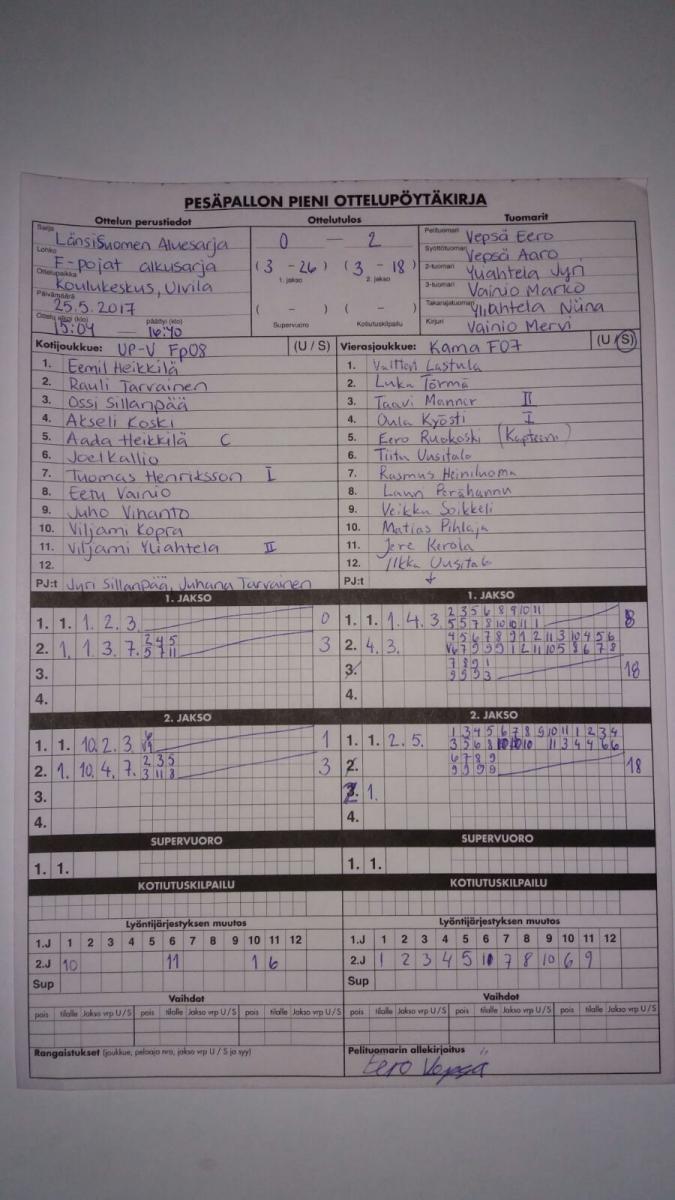 PESÄPALLON PIENI OTTELUPÖYTÄKIRJA
Ottelun perustiedot Ottelutulos Tuomarit
Sarja LänsiSuomen Aluesarja
Lohko F-pojat alkusarja
Ottelupaikka Koulukeskus, Ulvila
Päivämäärä 25.5.2017
Ottelu alkoi (klo) 15:04 — päättyi (klo) 16:40
0 — 2
(3 - 26) (3 - 18)
1. jakso 2. jakso
( - ) ( - )
Supervuoro Kotiutuskilpailu
Pelituomari Vepsä Eero
Syöttötuomari Vepsä Aaro
2-tuomari Yliahtela Jyri
3-tuomari Vainio Marko
Takarajatuomari Yliahtela Niina
Kirjuri Vainio Mervi
Kotijoukkue: UP-V Fp08 (U / S)
1. Eemil Heikkilä
2. Rauli Tarvainen
3. Ossi Sillanpää
4. Akseli Koski
5. Aada Heikkilä C
6. Joel Kallio
7. Tuomas Henriksson I
8. Eetu Vainio
9. Juho Vihanto
10. Viljami Kopra
11. Viljami Yliahtela II
12.
PJ:t Jyri Sillanpää, Juhana Tarvainen
Vierasjoukkue: Kama F07 (U / S)
1. Valtteri Lastula
2. Luka Törmä
3. Taavi Manner II
4. Oula Kyösti I
5. Eero Ruokoski (Kapteeni)
6. Tiitu Uusitalo
7. Rasmus Heiniluoma
8. Perähannu
9. Veikka Soikkeli
10. Matias Pihlaja
11. Jere Kerola
12. Ilkka Uusitalo
PJ:t
1. JAKSO
1. 1. 1. 2. 3. 0
2. 1. 1. 3. 7. 2 4 5 3
5 7 11
3.
4.
2. JAKSO
1. 1. 10. 2. 3. 1
2. 1. 10. 4. 7. 2 3 5 3
3 11 8
3.
4.
SUPERVUORO
1. 1.
KOTIUTUSKILPAILU
1. JAKSO
1. 1. 1. 4. 3. 2 3 5 6 8 9 10 11 8
5 5 7 8 10 10 11 1
2. 4. 3. 4 5 6 7 8 9 1 2 11 3 10 4 5 6
3. 7 8 9 1 18
9 9 9 3
4.
2. JAKSO
1. 1. 2. 5. 1 3 4 5 6 7 8 9 10 11 1 2 3 4
2. 6 7 8 9 18
9 9 9 9
2 1.
4.
SUPERVUORO
1. 1.
KOTIUTUSKILPAILU
Lyöntijärjestyksen muutos
1.J 1 2 3 4 5 6 7 8 9 10 11 12
2.J 10 11 1 6
Sup
Lyöntijärjestyksen muutos
1.J 1 2 3 4 5 6 7 8 9 10 11 12
2.J 1 2 3 4 5 7 8 10 6 9
Sup
Vaihdot
pois tilalle Jakso vrp U / S pois tilalle Jakso vrp U / S pois tilalle Jakso vrp U / S
Vaihdot
pois tilalle Jakso vrp U / S pois tilalle Jakso vrp U / S pois tilalle Jakso vrp U / S
Rangaistukset (joukkue, pelaaja nro, jakso vrp U / S ja syy)
Pelituomarin allekirjoitus
Eero Vepsä